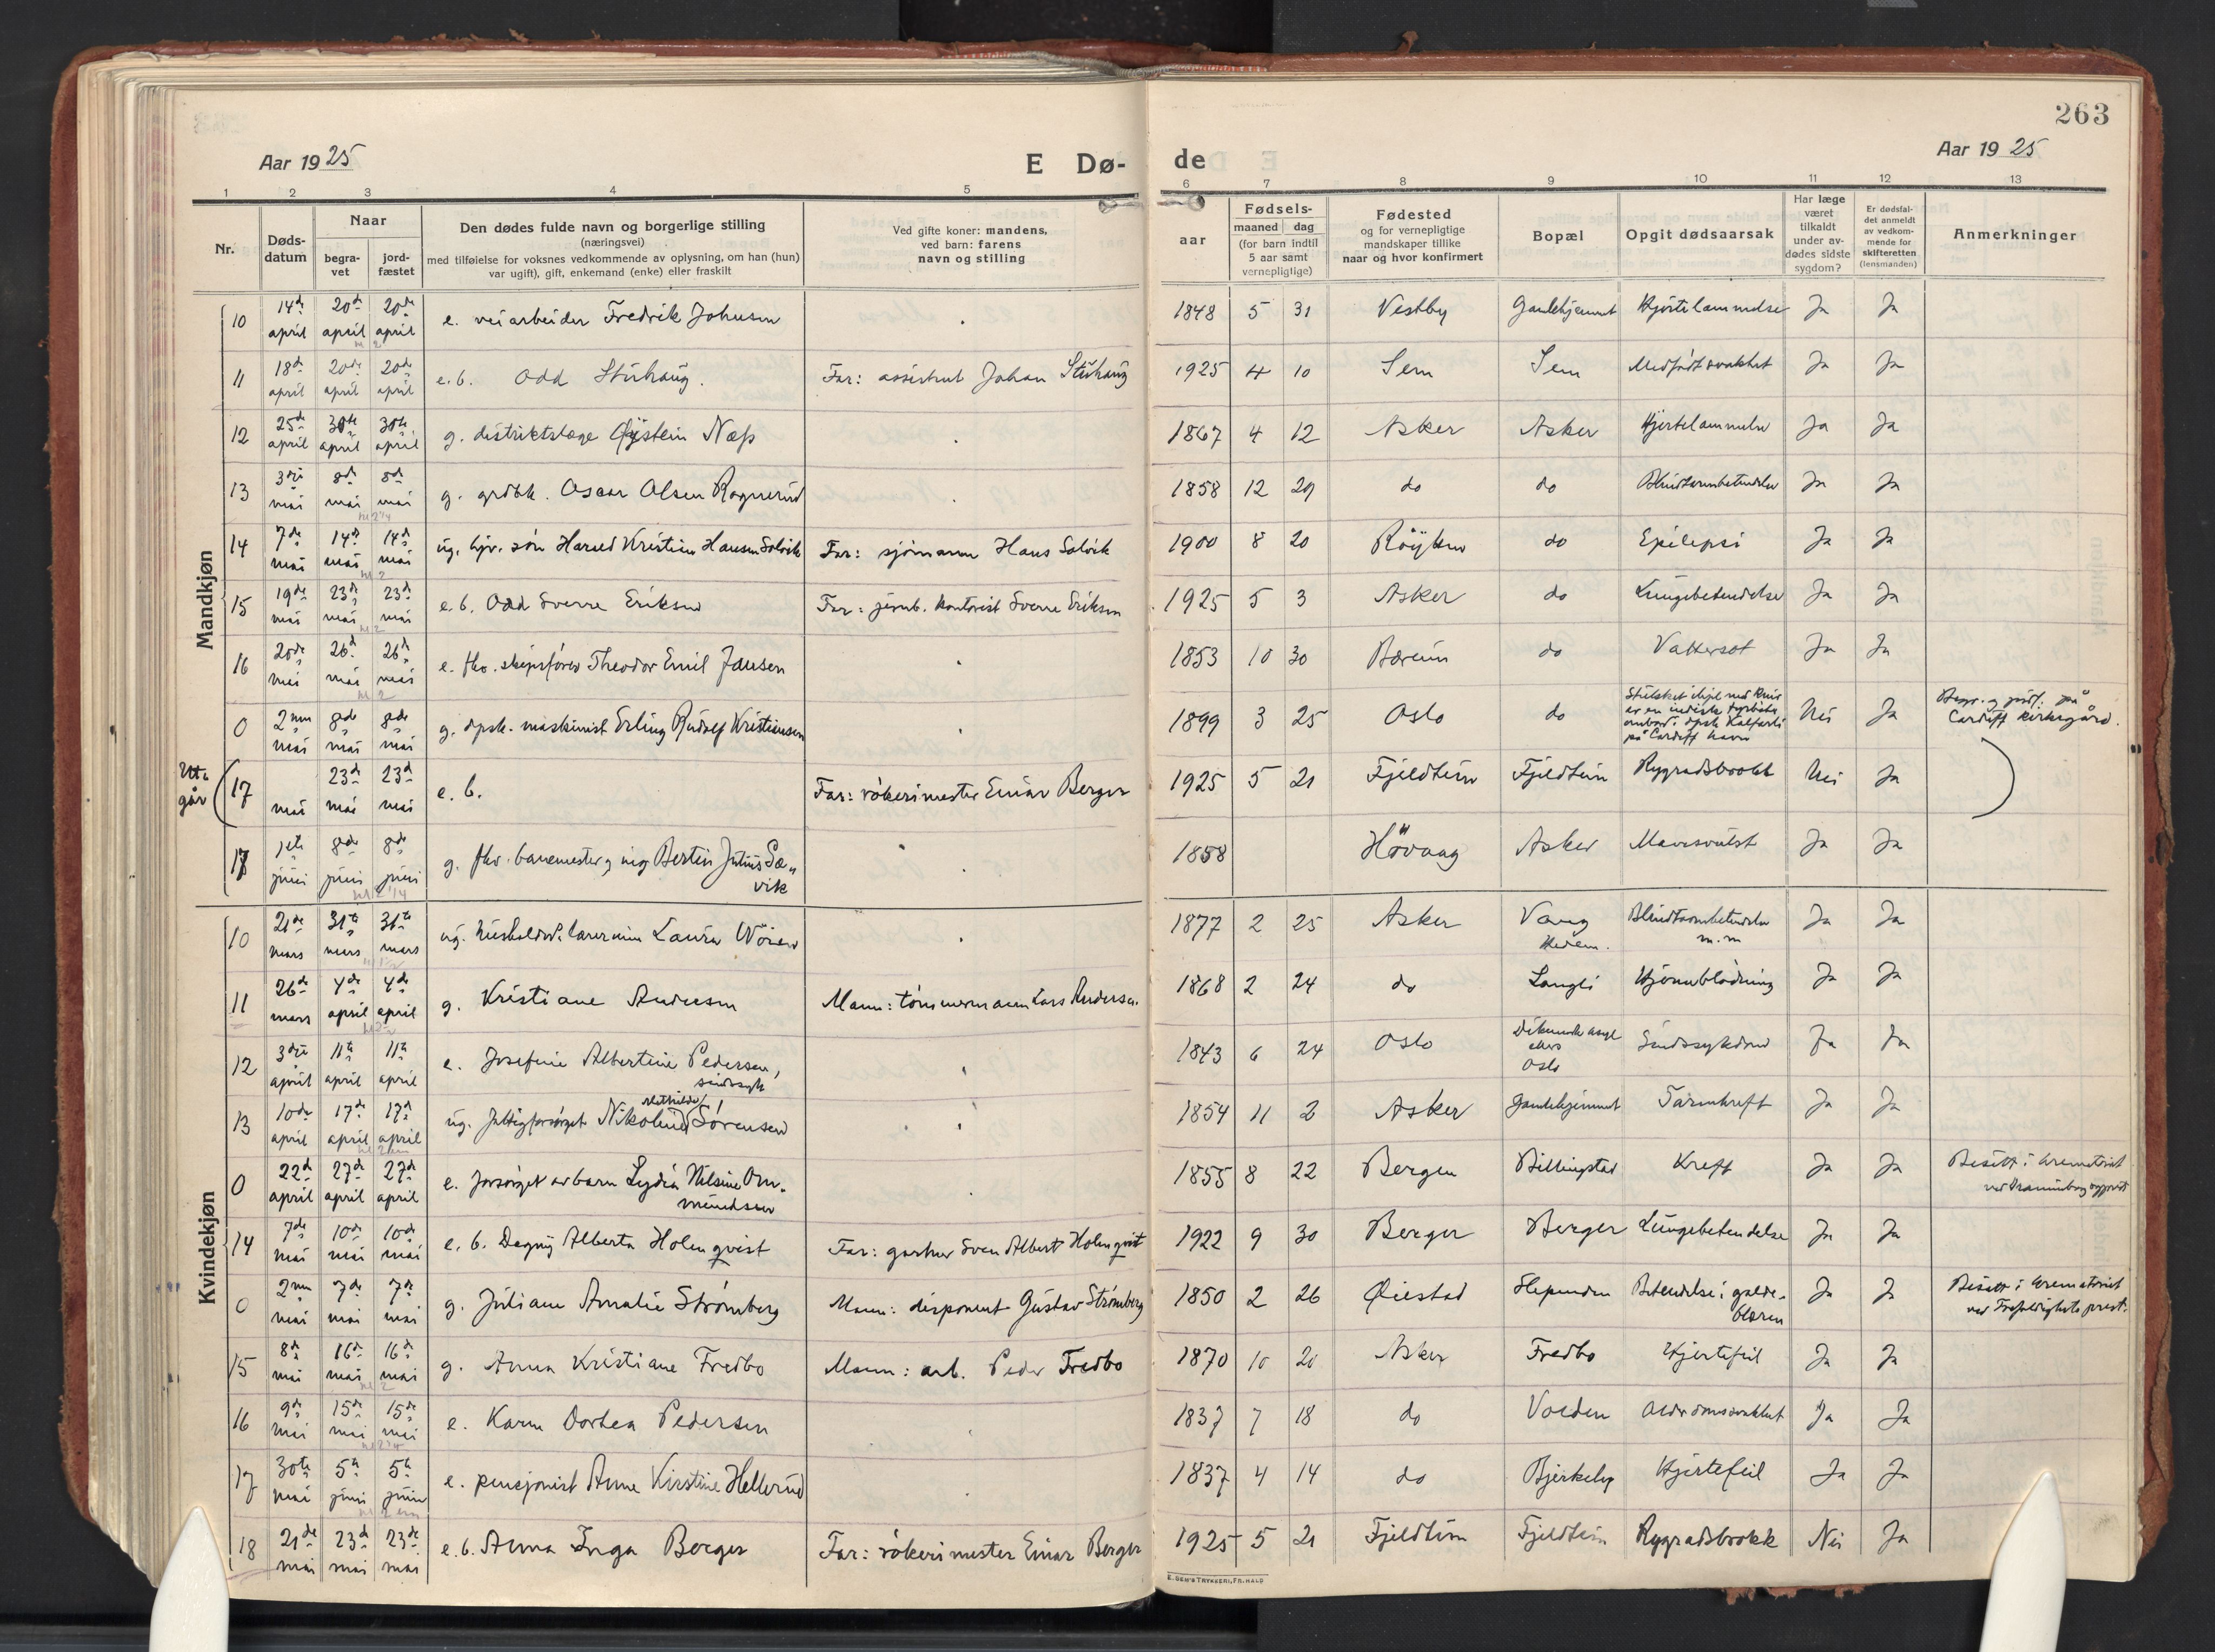 263
Aar 1925
E Dø-
de
Aar 1925
1 2 3 4 5 6 7 8 9 10 11 12 13
Nr.
Døds-
datum
Naar
begra-
vet
jord-
fæstet
Den dødes fulde navn og borgerlige stilling
(næringsvei)
med tilføielse for voksnes vedkommende av oplysning, om han (hun)
var ugift), gift, enkemand (enke) eller fraskilt
Ved gifte koner: mandens,
ved barn: farens
navn og stilling
aar
Fødsels-
maaned dag
(for barn indtil
5 aar samt
vernepligtige)
Fødested
og for vernepligtige
mandskaper tillike
naar og hvor konfirmert
Bopæl
Opgit dødsaarsak
Har læge
været
tilkaldt
under av-
dødes sidste
sygdom?
Er dødsfal-
det anmeldt
av vedkom-
mende for
skifteretten
(lensmanden)
Anmerkninger
Mandkjøn
10 14de april 20de april 20de april e. veiarbeider Fredrik Johnsen 1848 5 31 Vestby Gamlehjemmet Hjertelammelse Ja Ja
11 18de april 20de april 20de april e.b. Odd Stuhaug. Far: assistent Johan Stuhaug 1925 4 10 Sem Sem Medfödt svakhet Ja Ja
12 25de april 30te april 30te april g. distriktslæge Øystein Næss 1867 4 12 Asker Asker Hjertelammelse Ja Ja
13 3die mai 8de mai 8de mai g. grdbk. Oscar Olsen Rognerud 1858 12 29 do do Blindtarmbetendelse Ja Ja
14 7de mai 14de mai 14de mai ug. hjv. sön Harald Kristian Hansen Solvik Far: sjömann Hans Solvik 1900 8 20 Röyken do Epilepsi Ja Ja
15 19de mai 23de mai 23de mai e.b. Odd Sverre Eriksen Far: jernb. kontorist Sverre Eriksen 1925 5 3 Asker do Lungebetendelse Ja Ja
16 20de mai 26de mai 26de mai e. fhv. skipsförer Theodor Emil Jansen 1853 10 30 Bærum do Vattersot Ja Ja
0 2nen mai 8de mai 8de mai g. dpsk. maskinist Erling Rudolf Kristiansen 1899 3 25 Oslo do Stukket ihjel med kniv av en indisk fyrböter ombord i dpsk Kalfarli på Cardiff havn Nei Ja Begr. og jordf. på Cardiff kirkegård.
Utgår (17 mai 23de mai 23de mai e.b. Far: rökerimester Einar Berger 1925 5 21 Fjeldheim Fjeldheim Rygradsbrokk Nei Ja )
17 1ste juni 8de juni 8de juni g. fhv. banemester og ing Bertin Julius Sævik 1858 Hövaag Asker Mavesvulst Ja Ja
Kvindekjøn
10 21de mars 31te mars 31te mars ug. husholdn. lærerinne Laura Wöien 1877 2 25 Asker Vang Hedem. Blindtarmbetendelse m.m Ja Ja
11 26de mars 4de april 4de april g. Kristiane Andersen Mann: tömmermann Lars Andersen. 1868 2 24 do Langli Hjerneblödning Ja Ja
12 3die april 11te april 11te april e. Josefine Albertine Pedersen, sindssyk 1843 6 24 Oslo Oslo Sindssykdom Ja Ja
13 10de april 17de april 17de april ug. fattigforsörget Nikoline Mathilde Sörensen 1854 11 2 Asker Gamlehjemmet Tarmkreft Ja Ja
0 22de april 27de april 27de april e. forsörget av barn Lydia Nilsine Ommundsen 1855 8 22 Bergen Billingstad Kreft Ja Ja Bisatt i krematoriet
14 7de mai 10de mai 10de mai e.b. Dagny Alberta Holmqvist Far: gartner Sven Albert Holmqvist 1922 9 30 Berger Berger Lungebetendelse Ja Ja
0 2nen mai 7de mai 7de mai g. Juliane Amalie Strömberg Mann: disponent Gustav Strömberg 1850 2 26 Øiestad Slependen Betendelse i galdeblæren Ja Ja Bisatt i krematoriet ved Trefoldighets prest.
15 8de mai 16de mai 16de mai g. Anna Kristiane Fredbo Mann: arb. Peder Fredbo 1870 10 20 Asker Fredbo Hjertefeil Ja Ja
16 9de mai 15de mai 15de mai e. Karen Dortea Pedersen 1837 7 18 do Volden Alderdomssvakhet Ja Ja
17 30te mai 5te juni 5te juni e. pensjonist Anne Kirstine Hellerud 1837 4 14 do Bjerkeby Hjertefeil Ja Ja
18 21de mai 23de mai 23de mai e.b. Anna Inga Berger Far: rökerimester Einar Berger 1925 5 21 Fjeldheim Fjeldheim Rygradsbrokk Nei Ja
E. SEM'S TRYKKERI, FR.HALD